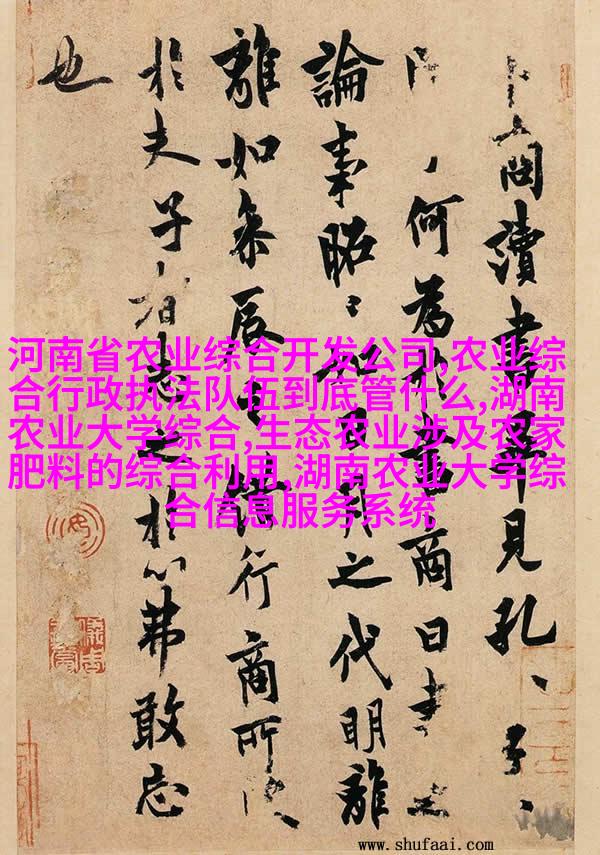 商讀書畢見孔、子、
何為於書商曰書之
論事昭〻如日月之代明離
離如參辰之行商所
於夫子志之於心弗敢忘
也
河南省农业综合开发公司,农业综
合行政执法队伍到底管什么,湖南
农业大学综合,生态农业涉及农家
肥料的综合利用,湖南农业大学综
合信息服务系统
www.shufaai.com